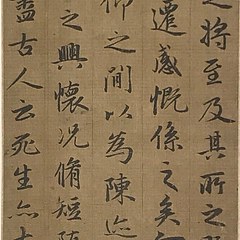 之將至及其所之
遷感慨係之矣
仰之閒以為陳迹
之興懷況脩短隨
盡古人云死生亦